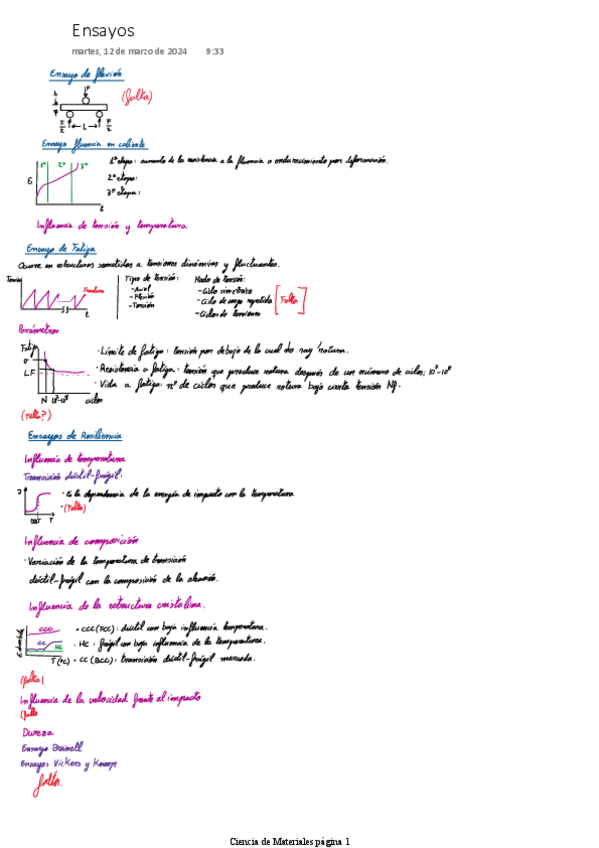 Ensayos
martes, 12 de marzo de 2024 9:33
Ensayo de flexión
(falta)
Ensayo fluencia en caliente
1ª etapa: aumento de la resistencia a la fluencia o endurecimiento por deformación.
2ª etapa:
3ª etapa:
Influencia de tensión y temperatura
Ensayo de Fatiga
Ocurre en estructuras sometidas a tensiones dinámicas y fluctuantes.
Tensión
t
Tipo de tensión:
- Axial
- Flexión
- Torsión
Modo de tensión:
- Ciclo simétrico
- Ciclo de carga repetida
- Ciclos de tensiones
Falta
Parámetros
Fatiga
LF
N 10⁷-10⁸ ciclos
· Límite de fatiga: tensión por debajo de la cual no hay rotura.
· Resistencia a fatiga: tensión que produce rotura después de un número de ciclos, 10⁷-10⁸
· Vida a fatiga: nº de ciclos que produce rotura bajo cierta tensión Nf.
(falta?)
Ensayos de Resiliencia
Influencia de temperatura
Transición dúctil-frágil:
· Es la dependencia de la energía de impacto con la temperatura
· (falta)
Influencia de composición
· Variación de la temperatura de transición
dúctil-frágil con la composición de la aleación.
Influencia de la estructura cristalina.
CCC
CC
HC
T(ºC)
• CCC (FCC): dúctil con baja influencia temperatura.
• HC: frágil con baja influencia de la temperatura.
• CC (BCC): transición dúctil-frágil marcada.
(falta)
Influencia de la velocidad frente al impacto
(falta
Dureza
Ensayo Brinell
Ensayos Vickers y Knoop
falta.
Ciencia de Materiales página 1